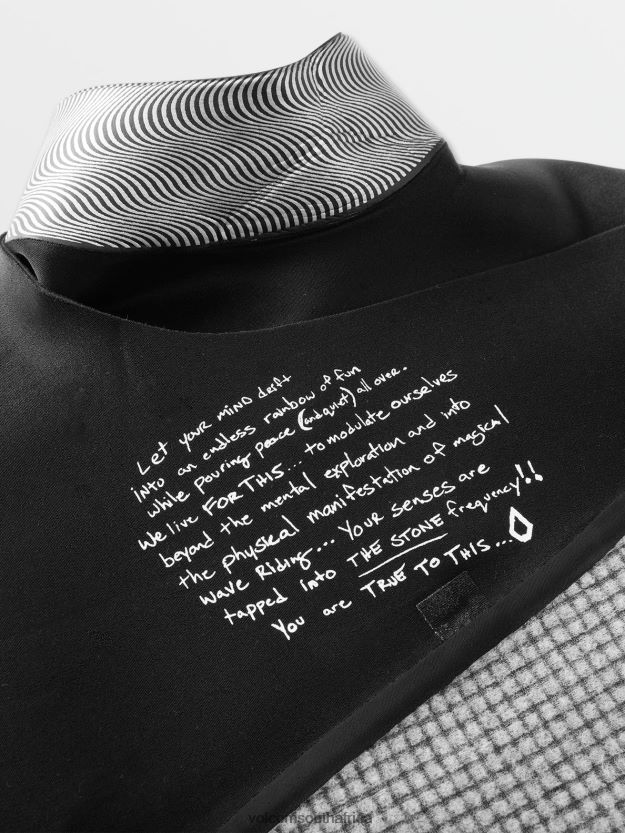 Let your mind drift
into an endless rainbow of fun
while pouring peace (and quiet) all over.
We live FOR THIS... to modulate ourselves
beyond the mental exploration and into
the physical manifestation of magical
wave Riding... Your senses are
tapped into THE STONE frequency!!
You are TRUE TO THIS...
volcomsouthafrica